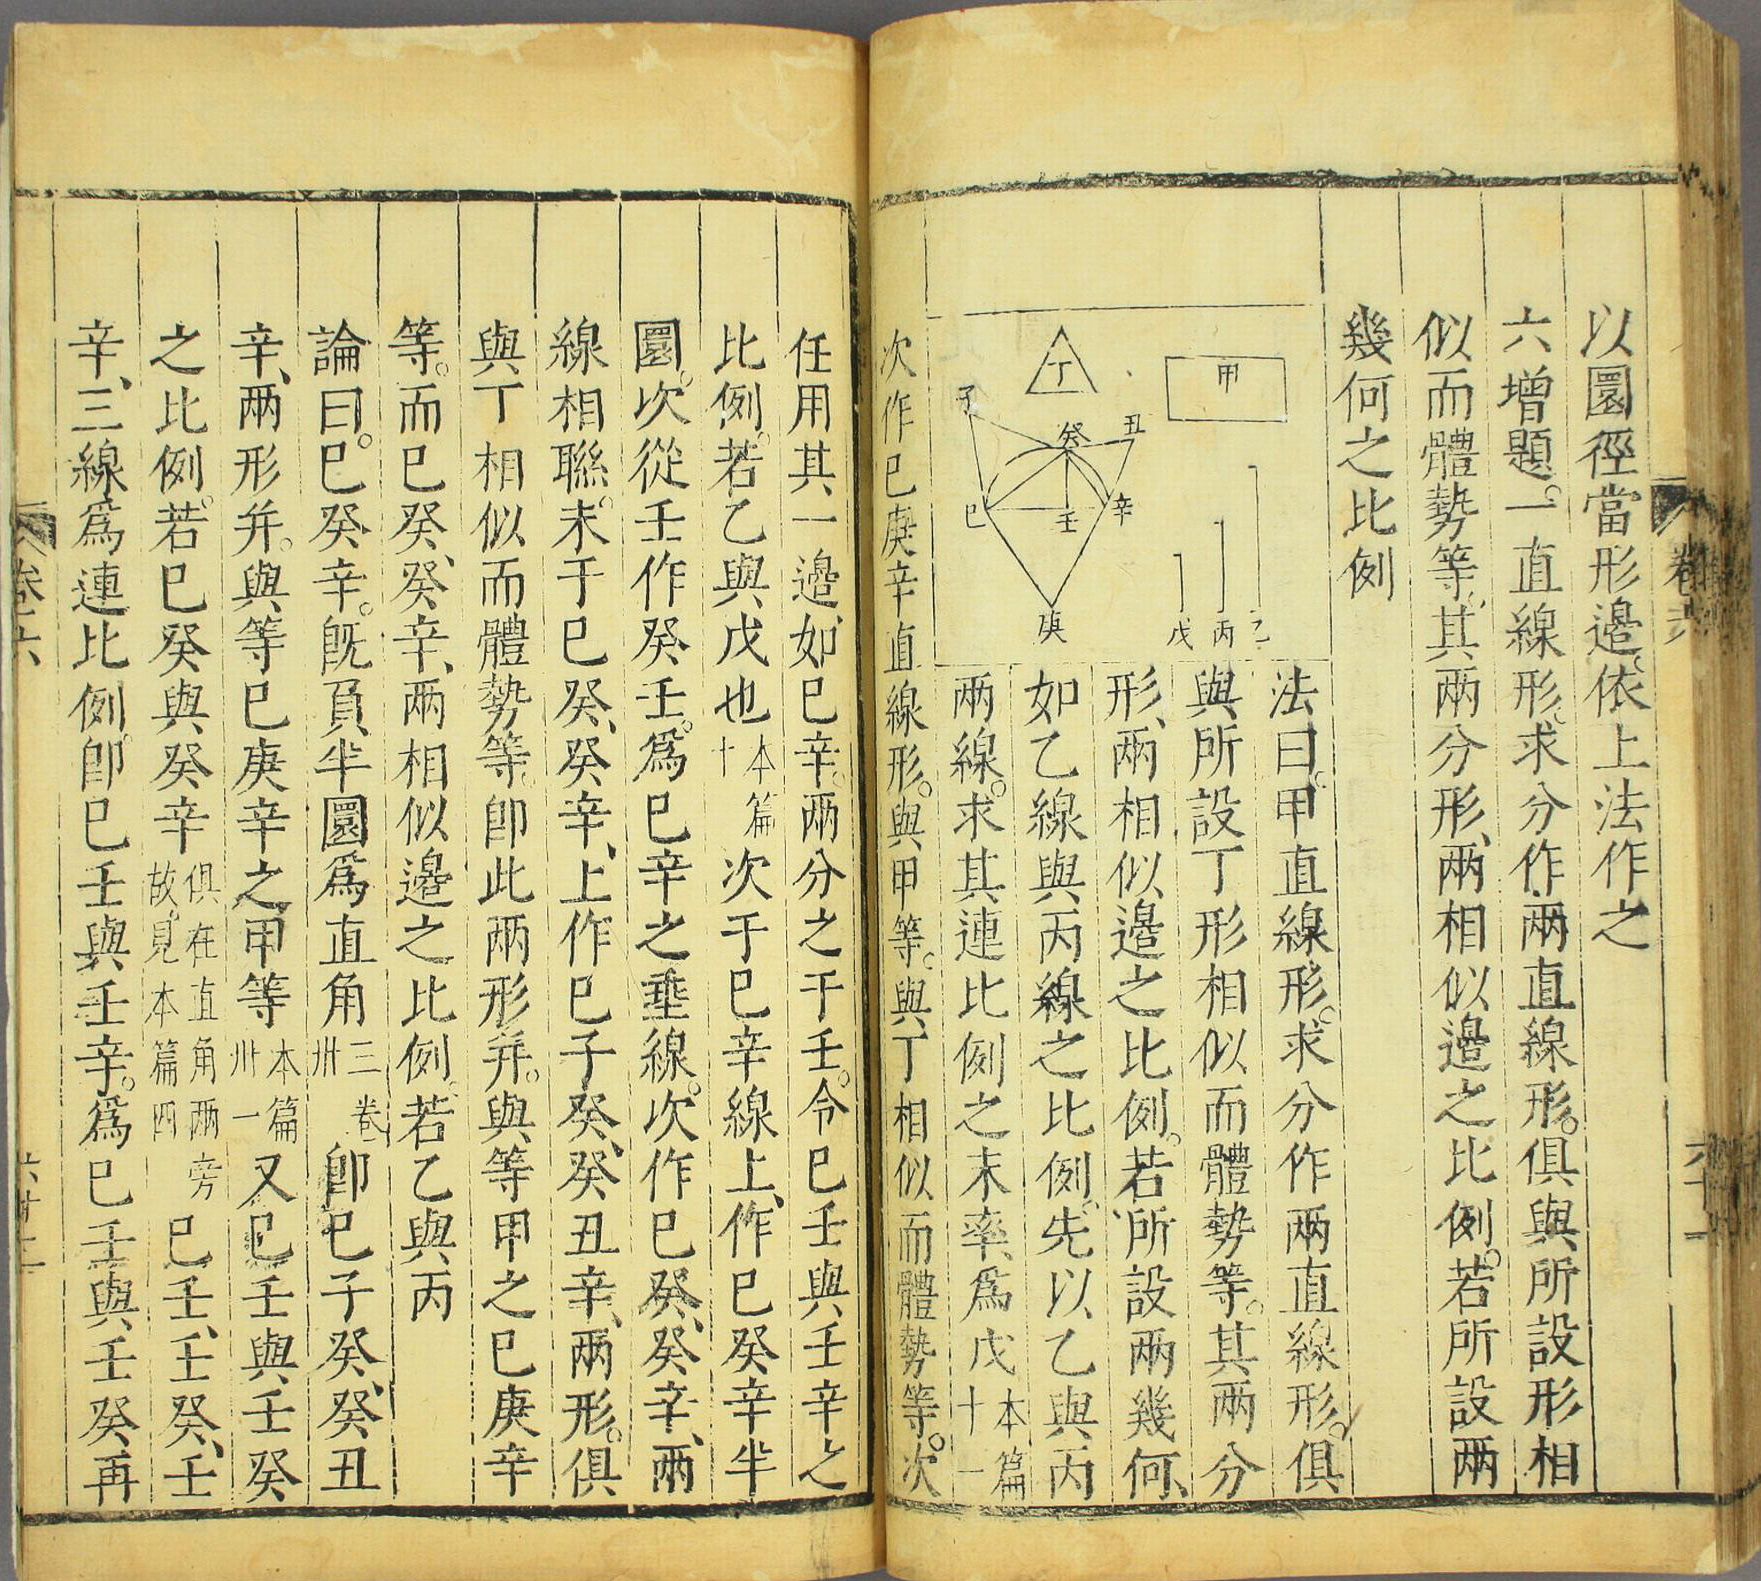 以圜徑當形邊。依上法作之
六増題。一直線形。求分作兩直線形。俱與所設形相
似而體勢等。其兩分形、兩相似邊之比例。若所設兩
幾何之比例
甲
丁
子
癸
丑
巳
壬
辛
庚
戊
丙
乙
法曰。甲直線形。求分作兩直線形。俱
與所設丁形相似而體勢等。其兩分
形、兩相似邊之比例。若所設兩幾何、
如乙線與丙線之比例。先以乙與丙
兩線。求其連比例之末率、爲戊本篇十一
次作巳庚辛直線形。與甲等。與丁相似而體勢等。次
任用其一邊、如巳辛。兩分之于壬。令巳壬與壬辛之
比例。若乙與戊也本篇十次于巳辛線上、作巳癸辛半
圜。次從壬作癸壬。爲巳辛之垂線。次作巳癸、癸辛、兩
線相聯。末于巳癸、癸辛、上作巳子癸、癸丑辛、兩形。俱
與丁相似而體勢等。卽此兩形并。與等甲之巳庚辛
等。而巳癸、癸辛、兩相似邊之比例。若乙與丙
論曰。巳癸辛。旣負半圜爲直角三卷卅卽巳子癸、癸丑
辛、兩形并。與等巳庚辛之甲等本篇卅一又巳壬與壬癸
之比例。若巳癸與癸辛俱在直角兩旁故。見本篇四巳壬、壬癸、壬
辛、三線爲連比例。卽巳壬與壬辛。爲巳壬與壬癸再
卷六
六十一
卷六